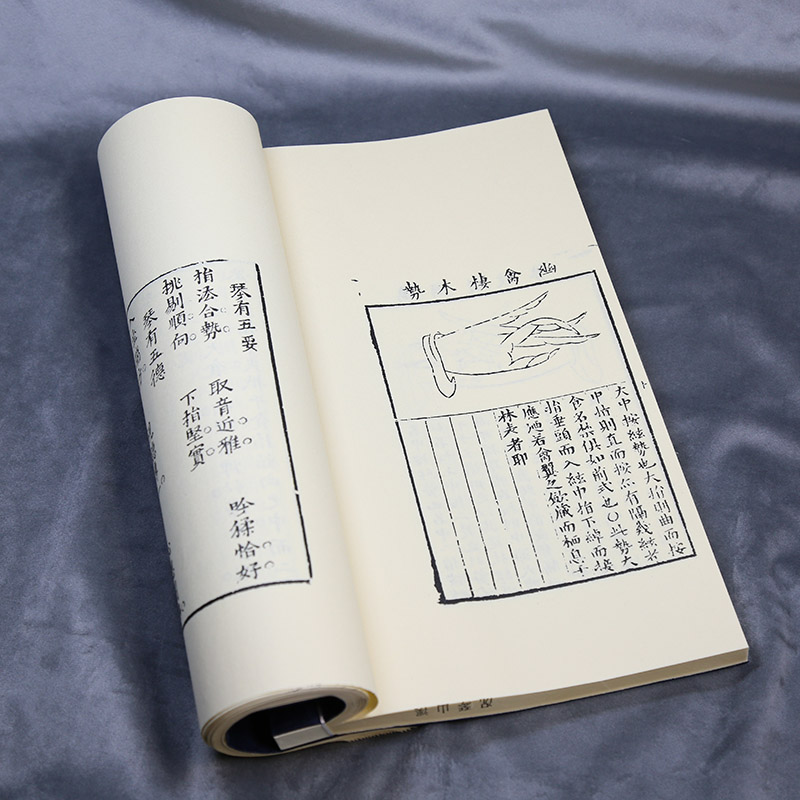 幽禽棲木勢
大中按絃勢也大指則曲而按
中指則直而按亦有隔幾絃者
名禁俱如前式也〇此勢大
指垂頭而入絃中指下綽而接
應迺若禽翼之歛戢而栖息于
林者耶
琴有五妥
指法合勢。取音近雅。吟猱恰好。
挑剔順向。下指堅實。
琴有五德